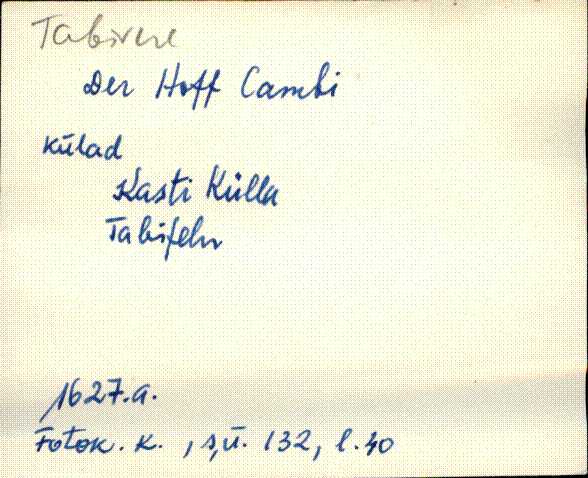 Tabivere
Der Hoff Cambi
Külad
Kasti Külla
Tabifehr
1627.a.
Fotok. k., s,ü. 132, l. 40